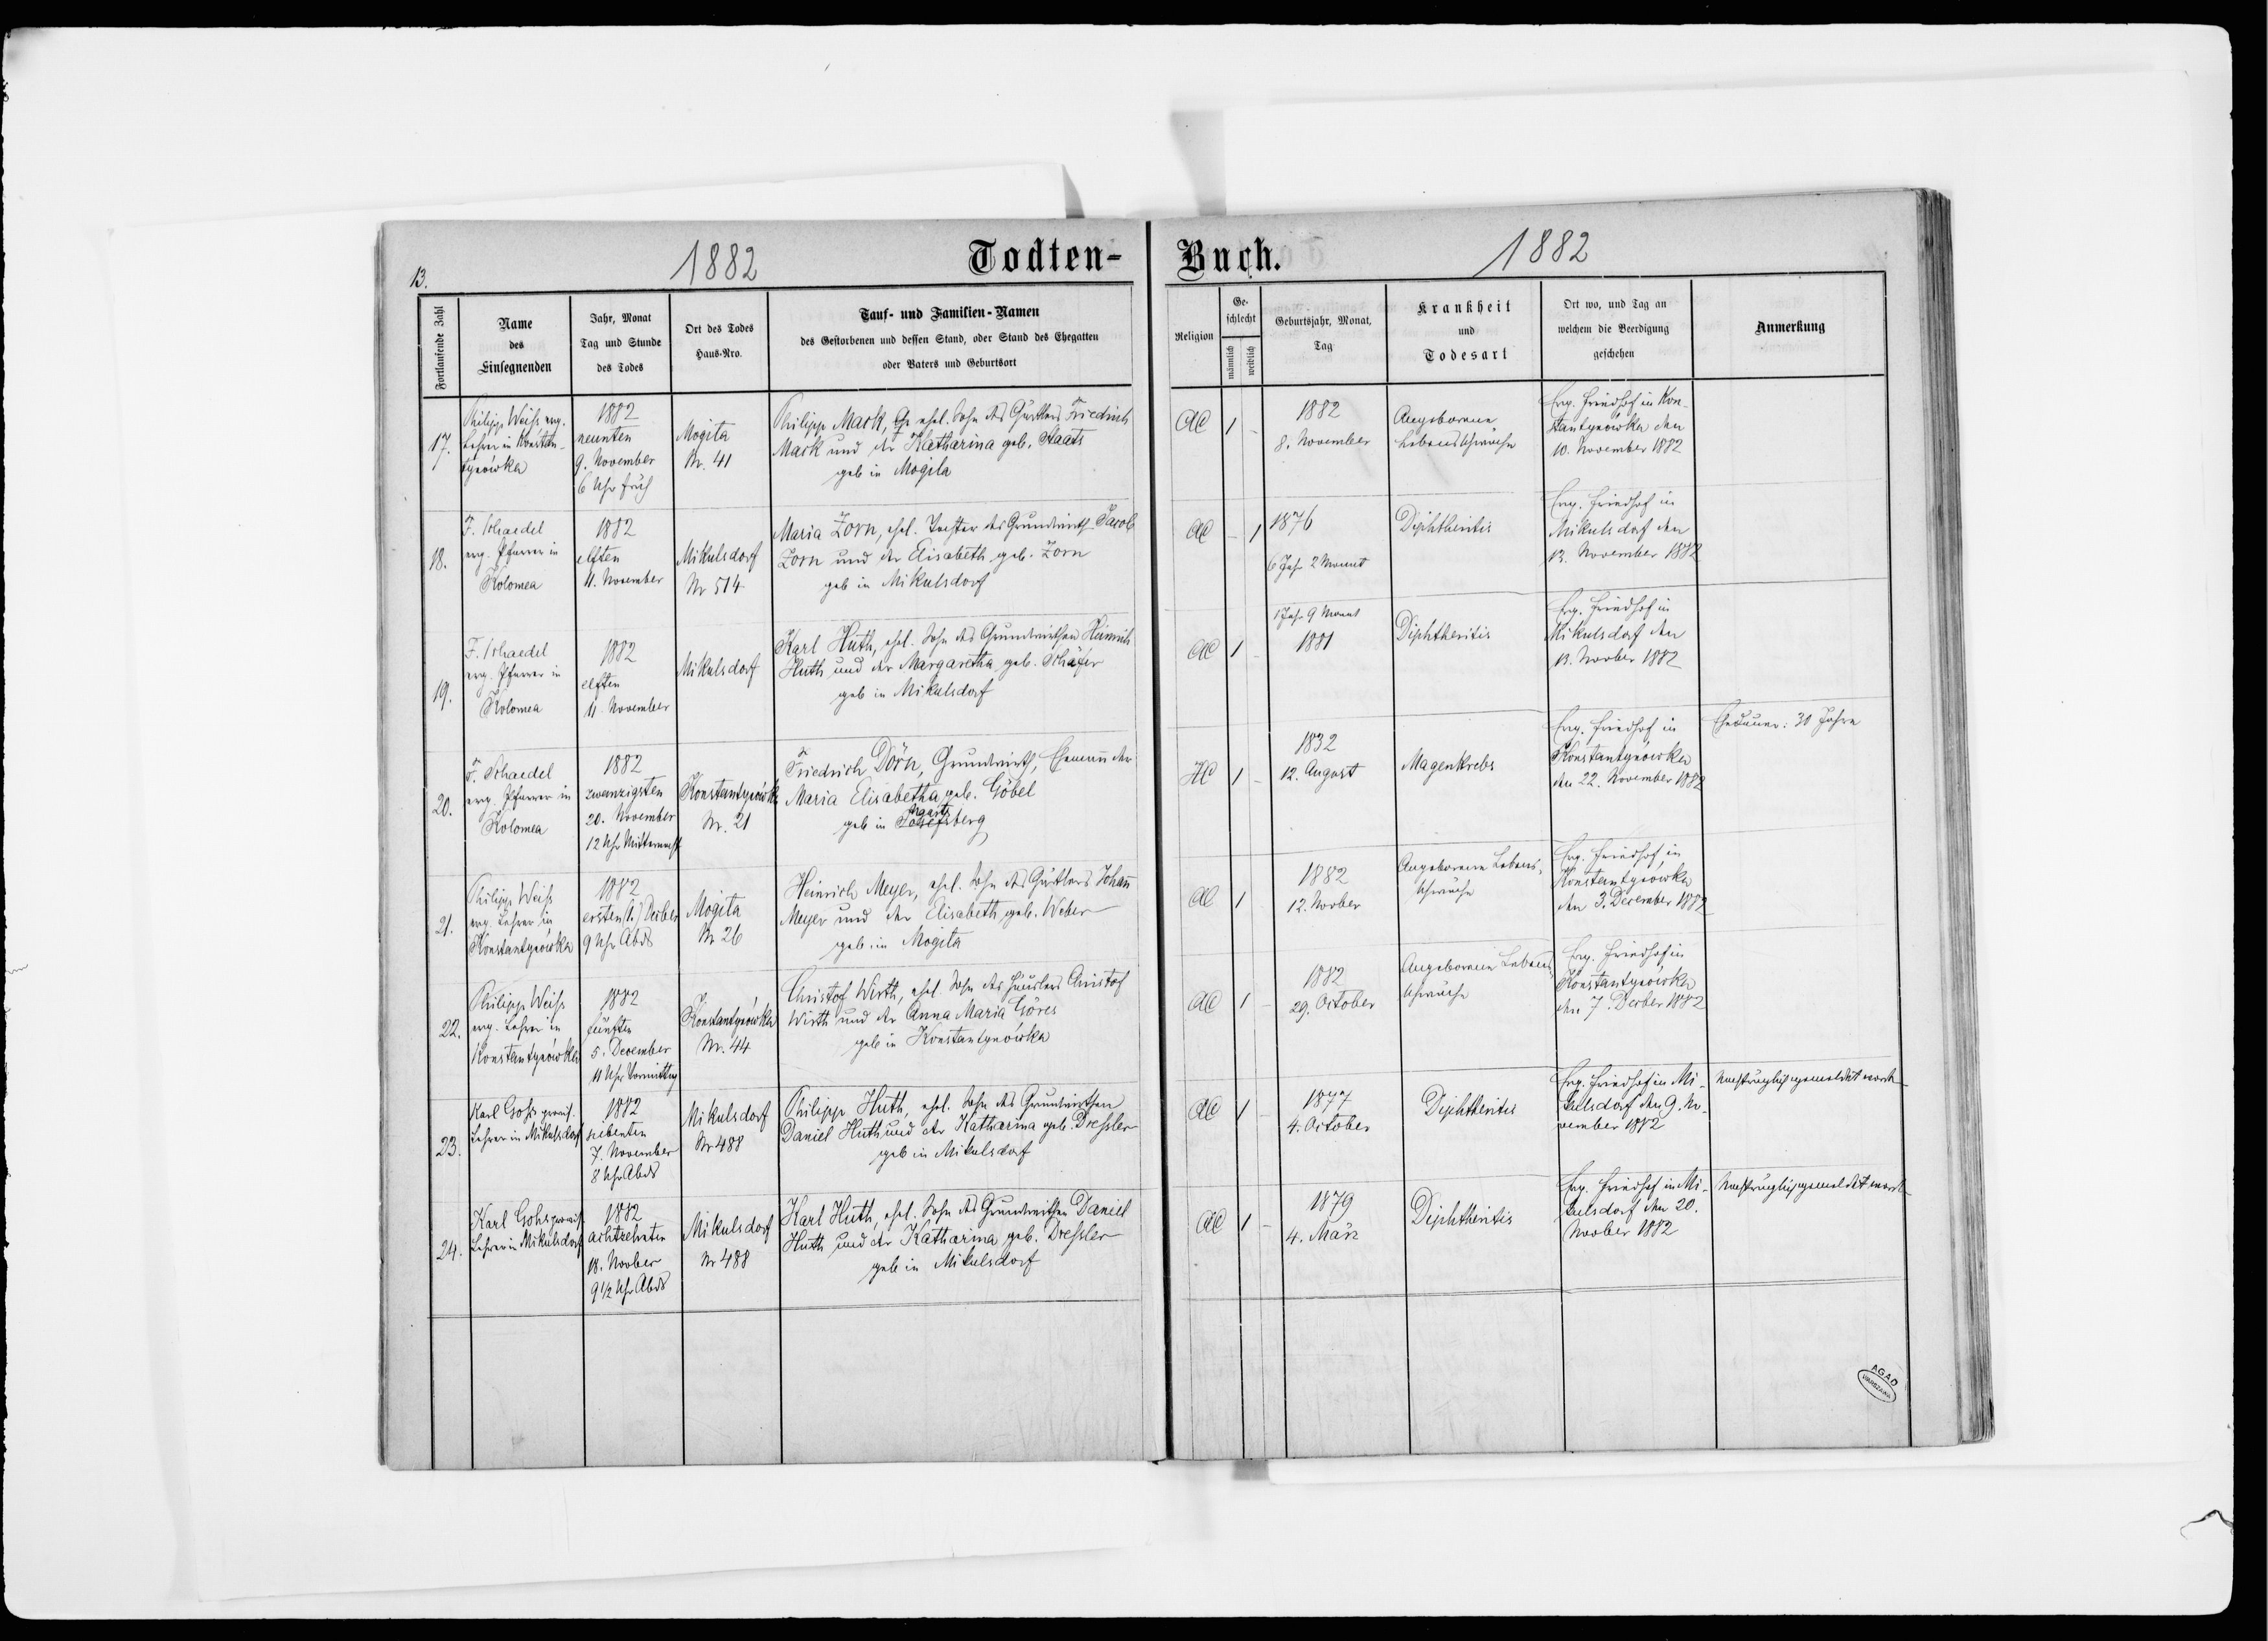 13.
1882
Todten-
Buch.
1882
Fortlaufende Zahl
Name
des
Einsegnenden
Jahr, Monat
Tag und Stunde
des Todes
Ort des Todes
Haus-Nro.
Tauf- und Familien-Namen
des Gestorbenen und dessen Stand, oder Stand des Ehegatten
oder Vaters und Geburtsort
Religion
Ge-
schlecht
männlich
weiblich
Geburtsjahr, Monat,
Tag
Krankheit
und
Todesart
Ort wo, und Tag an
welchem die Beerdigung
geschehen
Anmerkung
17.
Philipp Weiss evg.
Lehrer in Konstan-
tynówka
1882
neunten
9. November
6 Uhr früh
Mogila
Nr. 41
Philipp Mark, ehel. Sohn des Gärtlers Friedrich
Mark und der Katharina geb. Staats
geb in Mogila
AC
1
-
1882
8. November
Angeborene
Lebensschwäche
Evg. Friedhof in Kon-
stantynówka den
10. November 1882
18.
F. Schaedel
evg. Pfarrer in
Kolomea
1882
elften
11. November
Mikulsdorf
Nr 514
Maria Zorn, ehel. Tochter des Grundwirth Jacob
Zorn und der Elisabeth geb. Zorn
geb in Mikulsdorf
AC
-
1
1876
6 Jahr 2 Monat
Diphtheritis
Evg. Friedhof in
Mikulsdorf den
13. November 1882
19.
F. Schaedel
evg. Pfarrer in
Kolomea
1882
elften
11. November
Mikulsdorf
Karl Huth, ehel. Sohn des Grundwirthen Heinrich
Huth und der Margaretha geb. Schäfer
geb in Mikulsdorf
AC
1
-
1 Jahr 9 Monat
1881
Diphtheritis
Evg. Friedhof in
Mikulsdorf den
13. Novber 1882
20.
F. Schaedel
evg. Pfarrer in
Kolomea
1882
zwanzigsten
20. November
12 Uhr Mitternacht
Konstantynówka
Nr. 21
Friedrich Dörn, Grundwirth, Ehemann der
Maria Elisabetha geb. Göbel
geb in Josefsberg
HC
1
-
1832
12. August
Magenkrebs
Evg. Friedhof in
Konstantynówka
den 22. November 1882
Ehedauer: 30 Jahre
21.
Philipp Weiss
evg. Lehrer in
Konstantynówka
1882
ersten (1.) Decber
9 Uhr Abds
Mogila
Nr 26
Heinrich Meyer, ehel. Sohn des Gärtlers Johann
Meyer und der Elisabeth geb. Weber
geb in Mogila
AC
1
1882
12. Novber
Angeborene Lebens-
schwäche
Evg. Friedhof in
Konstantynówka
den 3. December 1882
22.
Philipp Weiss
evg. Lehrer in
Konstantynówka
1882
fünften
5. December
11 Uhr Vormittag
Konstantynówka
Nr. 44
Christof Wirth, ehel. Sohn des Häuslers Christof
Wirth und der Anna Maria Göres
geb in Konstantynówka
AC
1
-
1882
29. October
Angeborene Lebens-
schwäche
Evg. Friedhof in
Konstantynówka
den 7. Decber 1882
23.
Karl Gohs provis.
Lehrer in Mikulsdorf
1882
siebenten
7. November
8 Uhr Abds
Mikulsdorf
Nr 488
Philipp Huth, ehel. Sohn des Grundwirthen
Daniel Huth und der Katharina geb. Dressler
geb in Mikulsdorf
AC
1
-
1877
4. October
Diphtheritis
Evg. Friedhof in Mi-
kulsdorf den 9. No-
vember 1882
nachträglich gemeldet
24.
Karl Gohs provis.
Lehrer in Mikulsdorf
1882
achtzehnten
18. Novber
9 1/2 Uhr Abds
Mikulsdorf
Nr 488
Karl Huth, ehel. Sohn des Grundwirthen Daniel
Huth und der Katharina geb. Dressler
geb in Mikulsdorf
AC
1
-
1879
4. März
Diphtheritis
Evg. Friedhof in Mi-
kulsdorf den 20.
Novber 1882
nachträglich gemeldet
AGAD
WARSZAWA